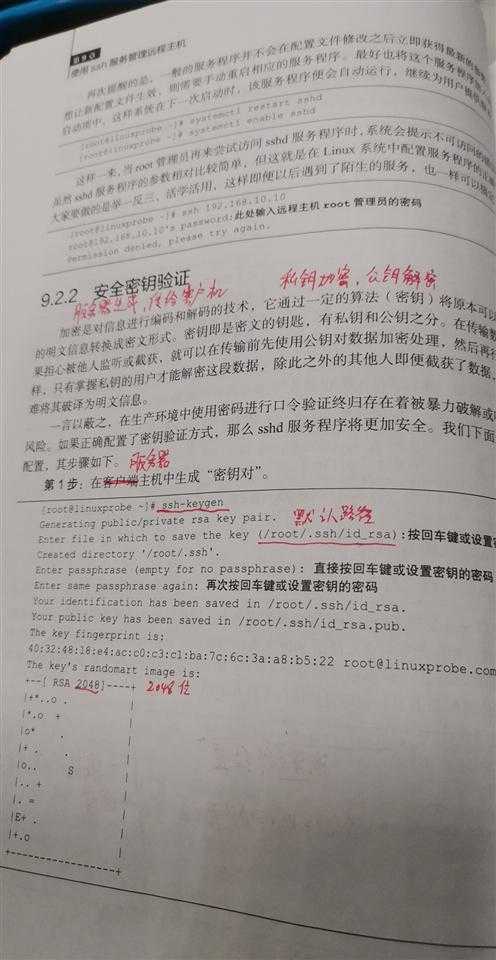 第9章
使用 ssh 服务管理远程主机
再次提醒的是，一般的服务程序并不会在配置文件修改之后立即获得最新的
想让新配置文件生效，则需要手动重启相应的服务程序。最好也将这个服务程序
启动项中，这样系统在下一次启动时，该服务程序便会自动运行，继续为用户提供
[root@linuxprobe ~]# systemctl restart sshd
[root@linuxprobe ~]# systemctl enable sshd
这样一来，当 root 管理员再来尝试访问 sshd 服务程序时，系统会提示不可访问的
虽然 sshd 服务程序的参数相对比较简单，但这就是在 Linux 系统中配置服务程序的正确
大家要做的是举一反三、活学活用，这样即便以后遇到了陌生的服务，也一样可以
[root@linuxprobe ~]# ssh 192.168.10.10
root@192.168.10.10's password:此处输入远程主机 root 管理员的密码
Permission denied, please try again.
9.2.2 安全密钥验证
私钥加密，公钥解密
服务器生成，传给客户机
加密是对信息进行编码和解码的技术，它通过一定的算法（密钥）将原本可以
的明文信息转换成密文形式。密钥即是密文的钥匙，有私钥和公钥之分。在传输数
果担心被他人监听或截获，就可以在传输前先使用公钥对数据加密处理，然后再行
样，只有掌握私钥的用户才能解密这段数据，除此之外的其他人即便截获了数据，
难将其破译为明文信息。
一言以蔽之，在生产环境中使用密码进行口令验证终归存在着被暴力破解或
风险。如果正确配置了密钥验证方式，那么 sshd 服务程序将更加安全。我们下面
配置，其步骤如下。
服务器
第 1 步：在客户端主机中生成“密钥对”。
[root@linuxprobe ~]# ssh-keygen
Generating public/private rsa key pair.
默认路径
Enter file in which to save the key (/root/.ssh/id_rsa):按回车键或设置
Created directory '/root/.ssh'.
Enter passphrase (empty for no passphrase): 直接按回车键或设置密钥的密码
Enter same passphrase again: 再次按回车键或设置密钥的密码
Your identification has been saved in /root/.ssh/id_rsa.
Your public key has been saved in /root/.ssh/id_rsa.pub.
The key fingerprint is:
40:32:48:18:e4:ac:c0:c3:c1:ba:7c:6c:3a:a8:b5:22 root@linuxprobe.com
The key's randomart image is:
+--[ RSA 2048]----+ 2048位
|+*..o . |
|*.o + |
|o* . |
|+ . . |
|o.. S |
|.. + |
|. = |
|E+ . |
|+.o |
+-----------------+